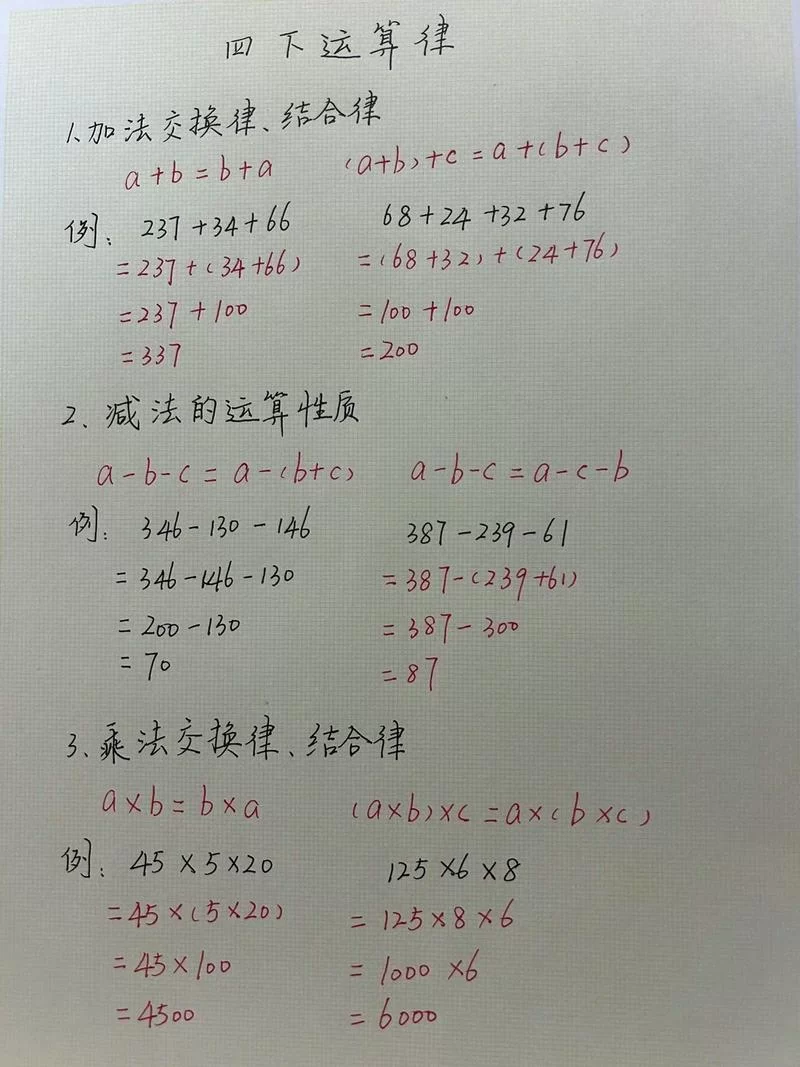 四下运算律
1、加法交换律、结合律
a+b=b+a (a+b)+c=a+(b+c)
例：237+34+66 68+24+32+76
=237+(34+66) =(68+32)+(24+76)
=237+100 =100+100
=337 =200
2、减法的运算性质
a-b-c=a-(b+c) a-b-c=a-c-b
例：346-130-146 387-239-61
=346-146-130 =387-(239+61)
=200-130 =387-300
=70 =87
3、乘法交换律、结合律
a×b=b×a (a×b)×c=a×(b×c)
例：45×5×20 125×6×8
=45×(5×20) =125×8×6
=45×100 =1000×6
=4500 =6000